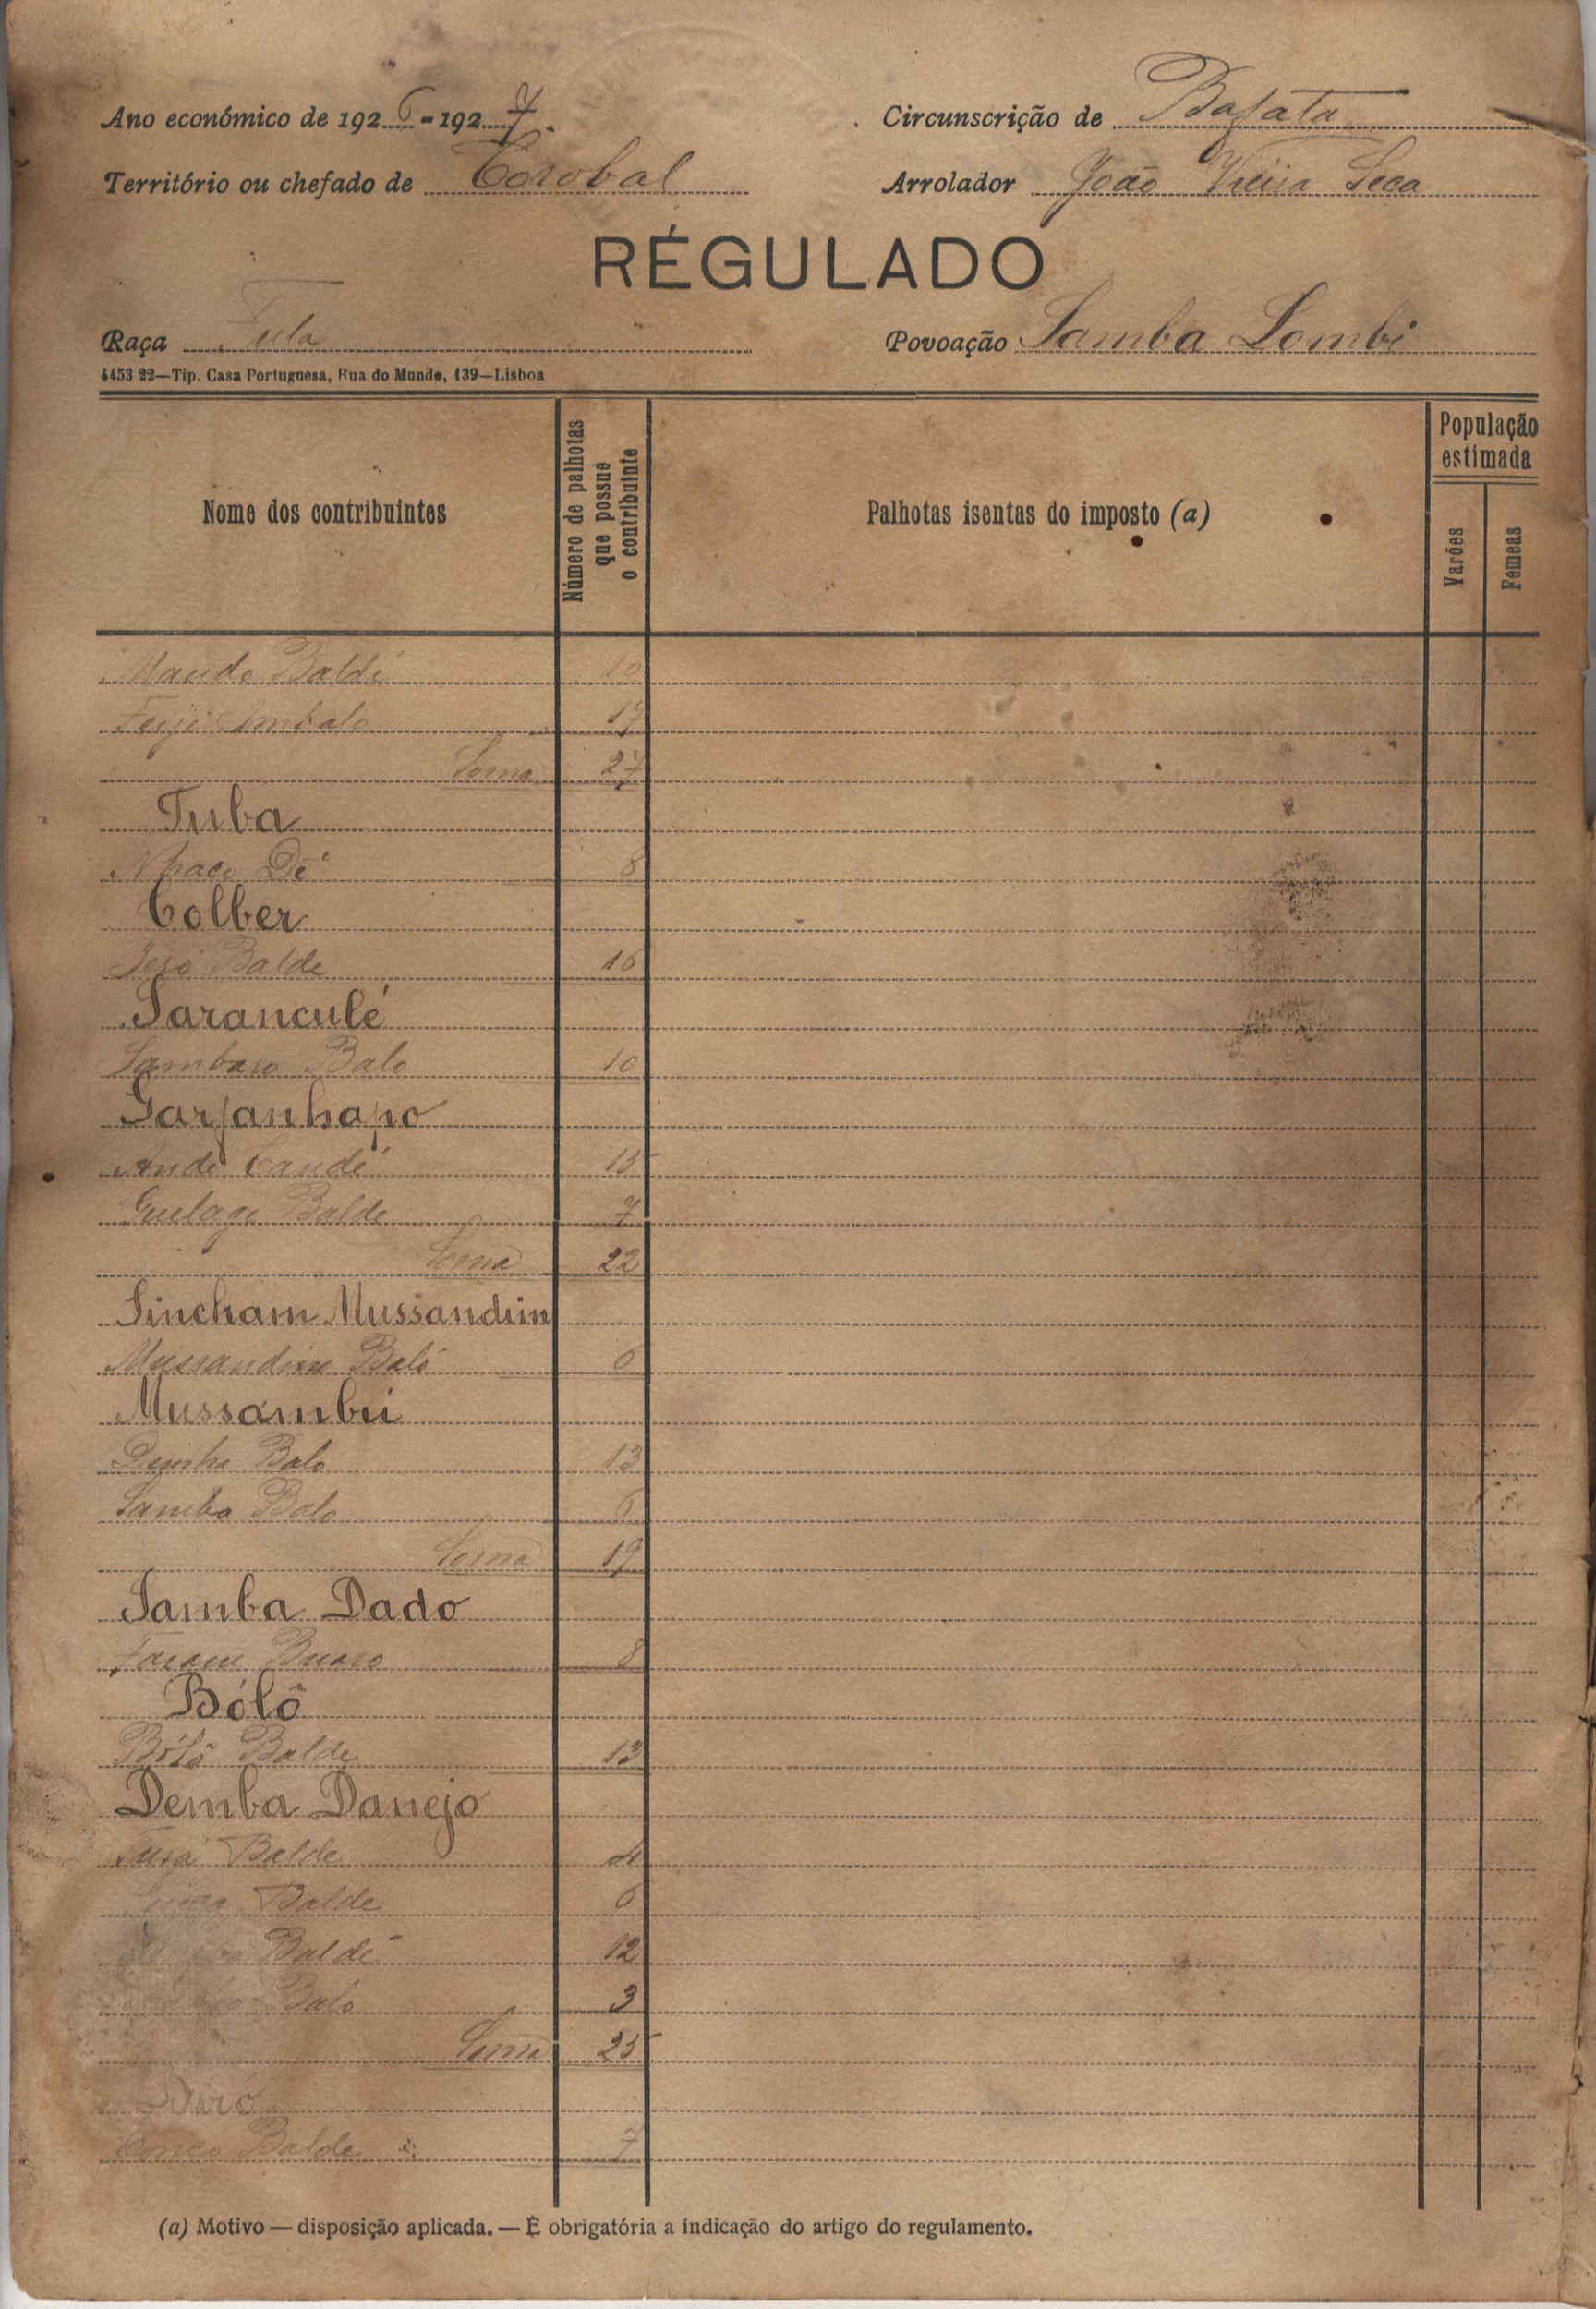 Ano económico de 1926-1927.
Circunscrição de Bafatá
Território ou chefado de Corobal
Arrolador João Vieira Seca
RÉGULADO
Raça Fula
Povoação Samba Lombi
4453 22—Tip. Casa Portuguesa, Rua do Mundo, 139—Lisboa
Nome dos contribuintes
Número de palhotas que possue o contribuinte
Palhotas isentas do imposto (a)
População estimada
Varões
Femeas
Mando Baldé 10
Embalo 17
Soma 27
Tuba
8
Colber
Baldé 16
Saranculé
Sambaro Balo 10
Sarjanhapo
Candé 15
Guelage Balde 7
Soma 22
Sincham Mussandim
Mussandim Baló 6
Mussambui
Demba Balo 13
Samba Balo 6
Soma 19
Samba Dado
Buaro 8
Bólô
Bólô Balde 13
Demba Danejo
Balde 4
Balde 6
Baldé 12
Balo 3
Soma 25
Balde 7
(a) Motivo — disposição aplicada. — É obrigatória a indicação do artigo do regulamento.